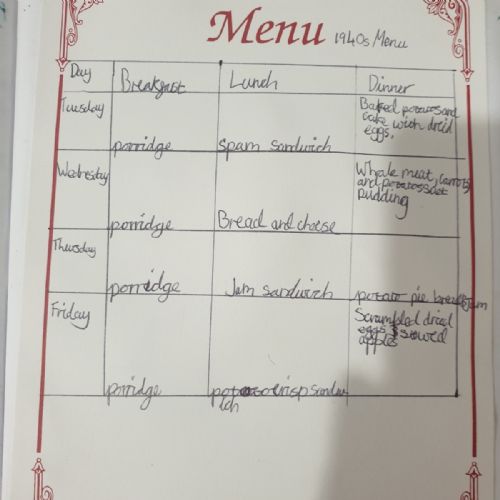 Menu 1940s Menu
Day Breakfast Lunch Dinner
Tuesday porridge spam sandwich Baked potatos and
cake with dried
eggs.
Wednesday porridge Bread and cheese Whale meat, carrots
and potatos
pudding
Thursday porridge Jam sandwich potato pie bread Jam
Friday porridge potatocrisp sandw
ich
Scrambled dried
eggs stewed
apples